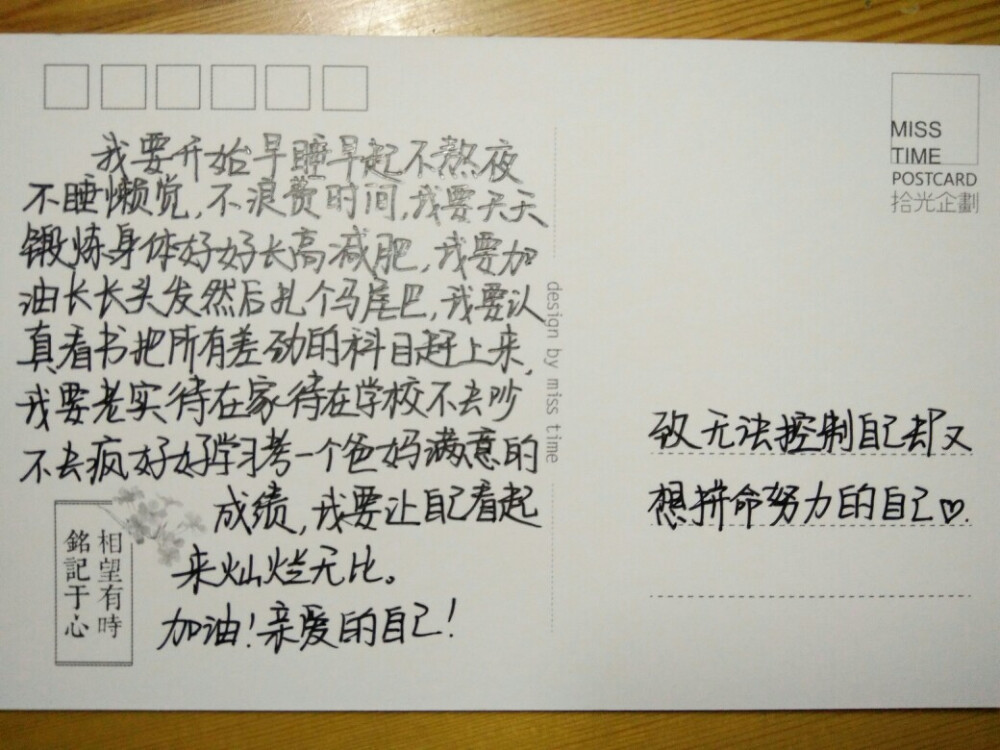 我要开始早睡早起不熬夜
不睡懒觉,不浪费时间,我要天天
锻炼身体好好长高减肥,我要加
油长长头发然后扎个马尾巴,我要认
真看书把所有差劲的科目赶上来,
我要老实待在家待在学校不去吵
不去疯好好学习考一个爸妈满意的
成绩,我要让自己看起
来灿烂无比。
加油!亲爱的自己!
相望有時
銘記于心
design by miss time
MISS
TIME
POSTCARD
拾光企劃
致无法控制自己却又
想拼命努力的自己♡.